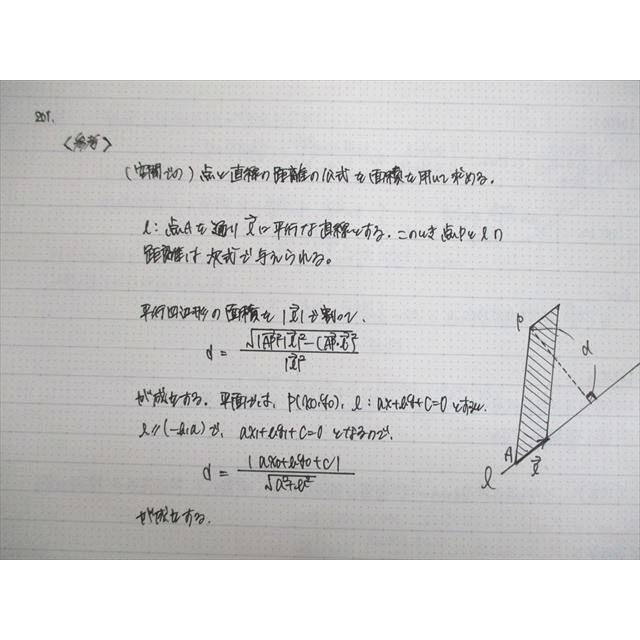 201.
<参考>
(空間での) 点と直線の距離の公式を面積を用いて求める。
l: 点Aを通り l⃗に平行な直線とする。このとき点Pとlの
距離は次式で与えられる。
平行四辺形の面積を |l⃗| で割って、
d = √(|AP⃗|²|l⃗|² - (AP⃗・l⃗)²) / |l⃗|²
が成立する。平面では、P(x0, y0), l: ax+by+c=0 とすると、
l // (-b, a) で、 ax1+by1+c=0 となるので、
d = |ax0+by0+c| / √(a²+b²)
が成立する。
P
d
A
l⃗
l